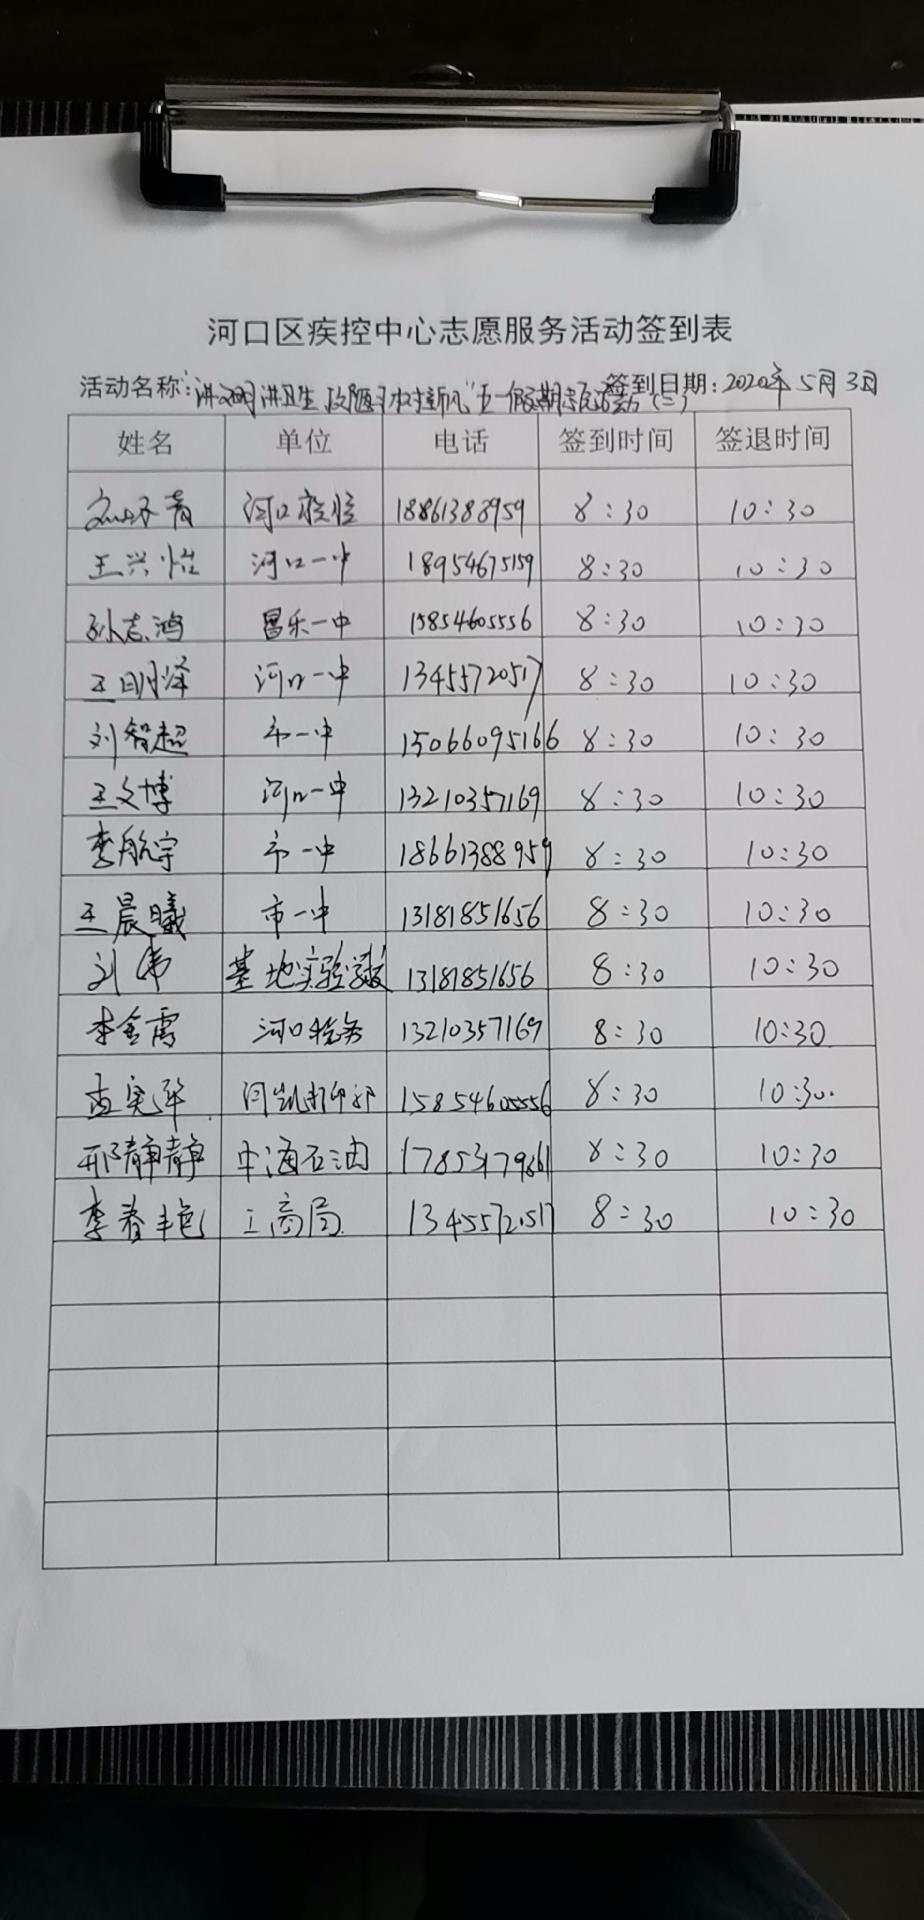 河口区疾控中心志愿服务活动签到表
活动名称:"讲文明讲卫生 改陋习树新风"五一假期志愿活动(三) 签到日期:2020年5月3日
姓名 单位 电话 签到时间 签退时间
河口疾控 18861388959 8:30 10:30
王兴怡 河口一中 18954675159 8:30 10:30
孙志鸿 昌乐一中 15854605556 8:30 10:30
王明泽 河口一中 13455720517 8:30 10:30
刘智超 市一中 15066095166 8:30 10:30
王文博 河口一中 13210357169 8:30 10:30
李航宇 市一中 18661388959 8:30 10:30
王晨曦 市一中 13181851656 8:30 10:30
刘伟 基地实验学校 13181851656 8:30 10:30
李金霞 河口税务 13210357169 8:30 10:30
15854605556 8:30 10:30.
邢静静 中海石油 17853179861 8:30 10:30
李春艳 工商局 13455720517 8:30 10:30